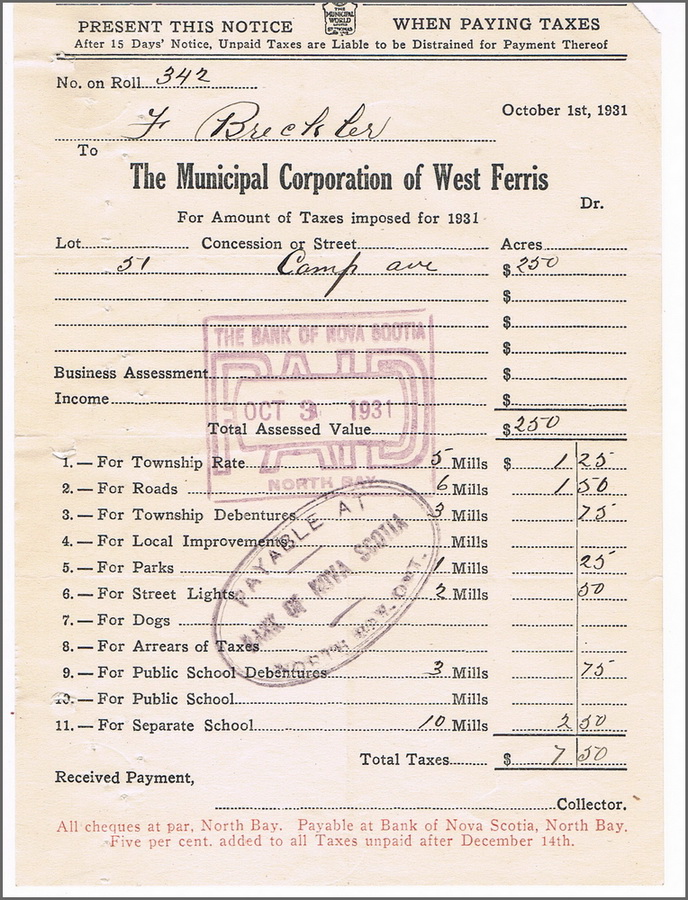 PRESENT THIS NOTICE THE MUNICIPAL WORLD WHEN PAYING TAXES
After 15 Days' Notice, Unpaid Taxes are Liable to be Distrained for Payment Thereof
No. on Roll 342
October 1st, 1931
F Breckler
To
The Municipal Corporation of West Ferris
Dr.
For Amount of Taxes imposed for 1931
Lot Concession or Street Acres
51 Camp ave $ 250
$
$
$
Business Assessment $
Income $
Total Assessed Value $ 250
THE BANK OF NOVA SCOTIA
PAID
OCT 3 1931
NORTH BAY
1.—For Township Rate 5 Mills $ 1 25
2.—For Roads 6 Mills 1 50
3.—For Township Debentures 3 Mills 75
4.—For Local Improvements Mills
5.—For Parks 1 Mills 25
6.—For Street Lights 2 Mills 50
7.—For Dogs
8.—For Arrears of Taxes
9.—For Public School Debentures 3 Mills 75
10.—For Public School Mills
11.—For Separate School 10 Mills 2 50
PAYABLE AT
BANK OF NOVA SCOTIA
NORTH BAY, ONT.
Total Taxes $ 7 50
Received Payment,
Collector.
All cheques at par, North Bay. Payable at Bank of Nova Scotia, North Bay.
Five per cent. added to all Taxes unpaid after December 14th.